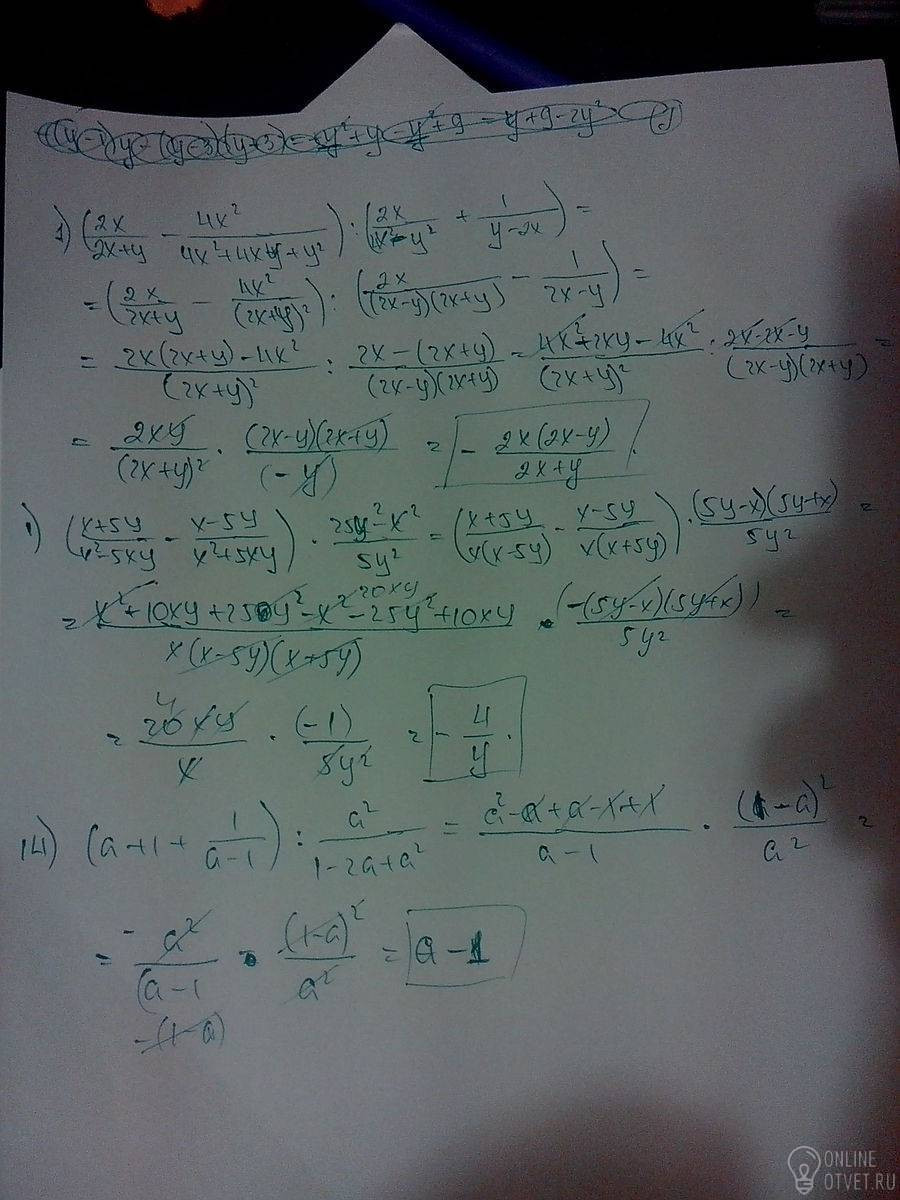 1) (2x/(2x+y) - 4x²/(4x²+4xy+y²)) : (2x/(4x²-y²) + 1/(y-2x)) =
= (2x/(2x+y) - 4x²/(2x+y)²) : (2x/((2x-y)(2x+y)) - 1/(2x-y)) =
= (2x(2x+y)-4x²)/(2x+y)² : (2x-(2x+y))/((2x-y)(2x+y)) = (4x²+2xy-4x²)/(2x+y)² : (2x-2x-y)/((2x-y)(2x+y)) =
= 2xy/(2x+y)² · (2x-y)(2x+y)/(-y) = - 2x(2x-y)/(2x+y).
1) ((x+5y)/(x²-5xy) - (x-5y)/(x²+5xy)) · (25y²-x²)/5y² = ((x+5y)/(x(x-5y)) - (x-5y)/(x(x+5y))) · (5y-x)(5y+x)/5y² =
20xy
= (x²+10xy+25y²-x²-25y²+10xy)/(x(x-5y)(x+5y)) · (-(5y-x)(5y+x))/5y² =
4
= 20xy/x · (-1)/5y² = - 4/y.
14) (a+1+ 1/(a-1)) : a²/(1-2a+a²) = (a²-a+a-1+1)/(a-1) · (1-a)²/a² =
= - a²/(a-1 · (1-a)²/a² = a-1
-(1-a)
ONLINE
OTVET.RU